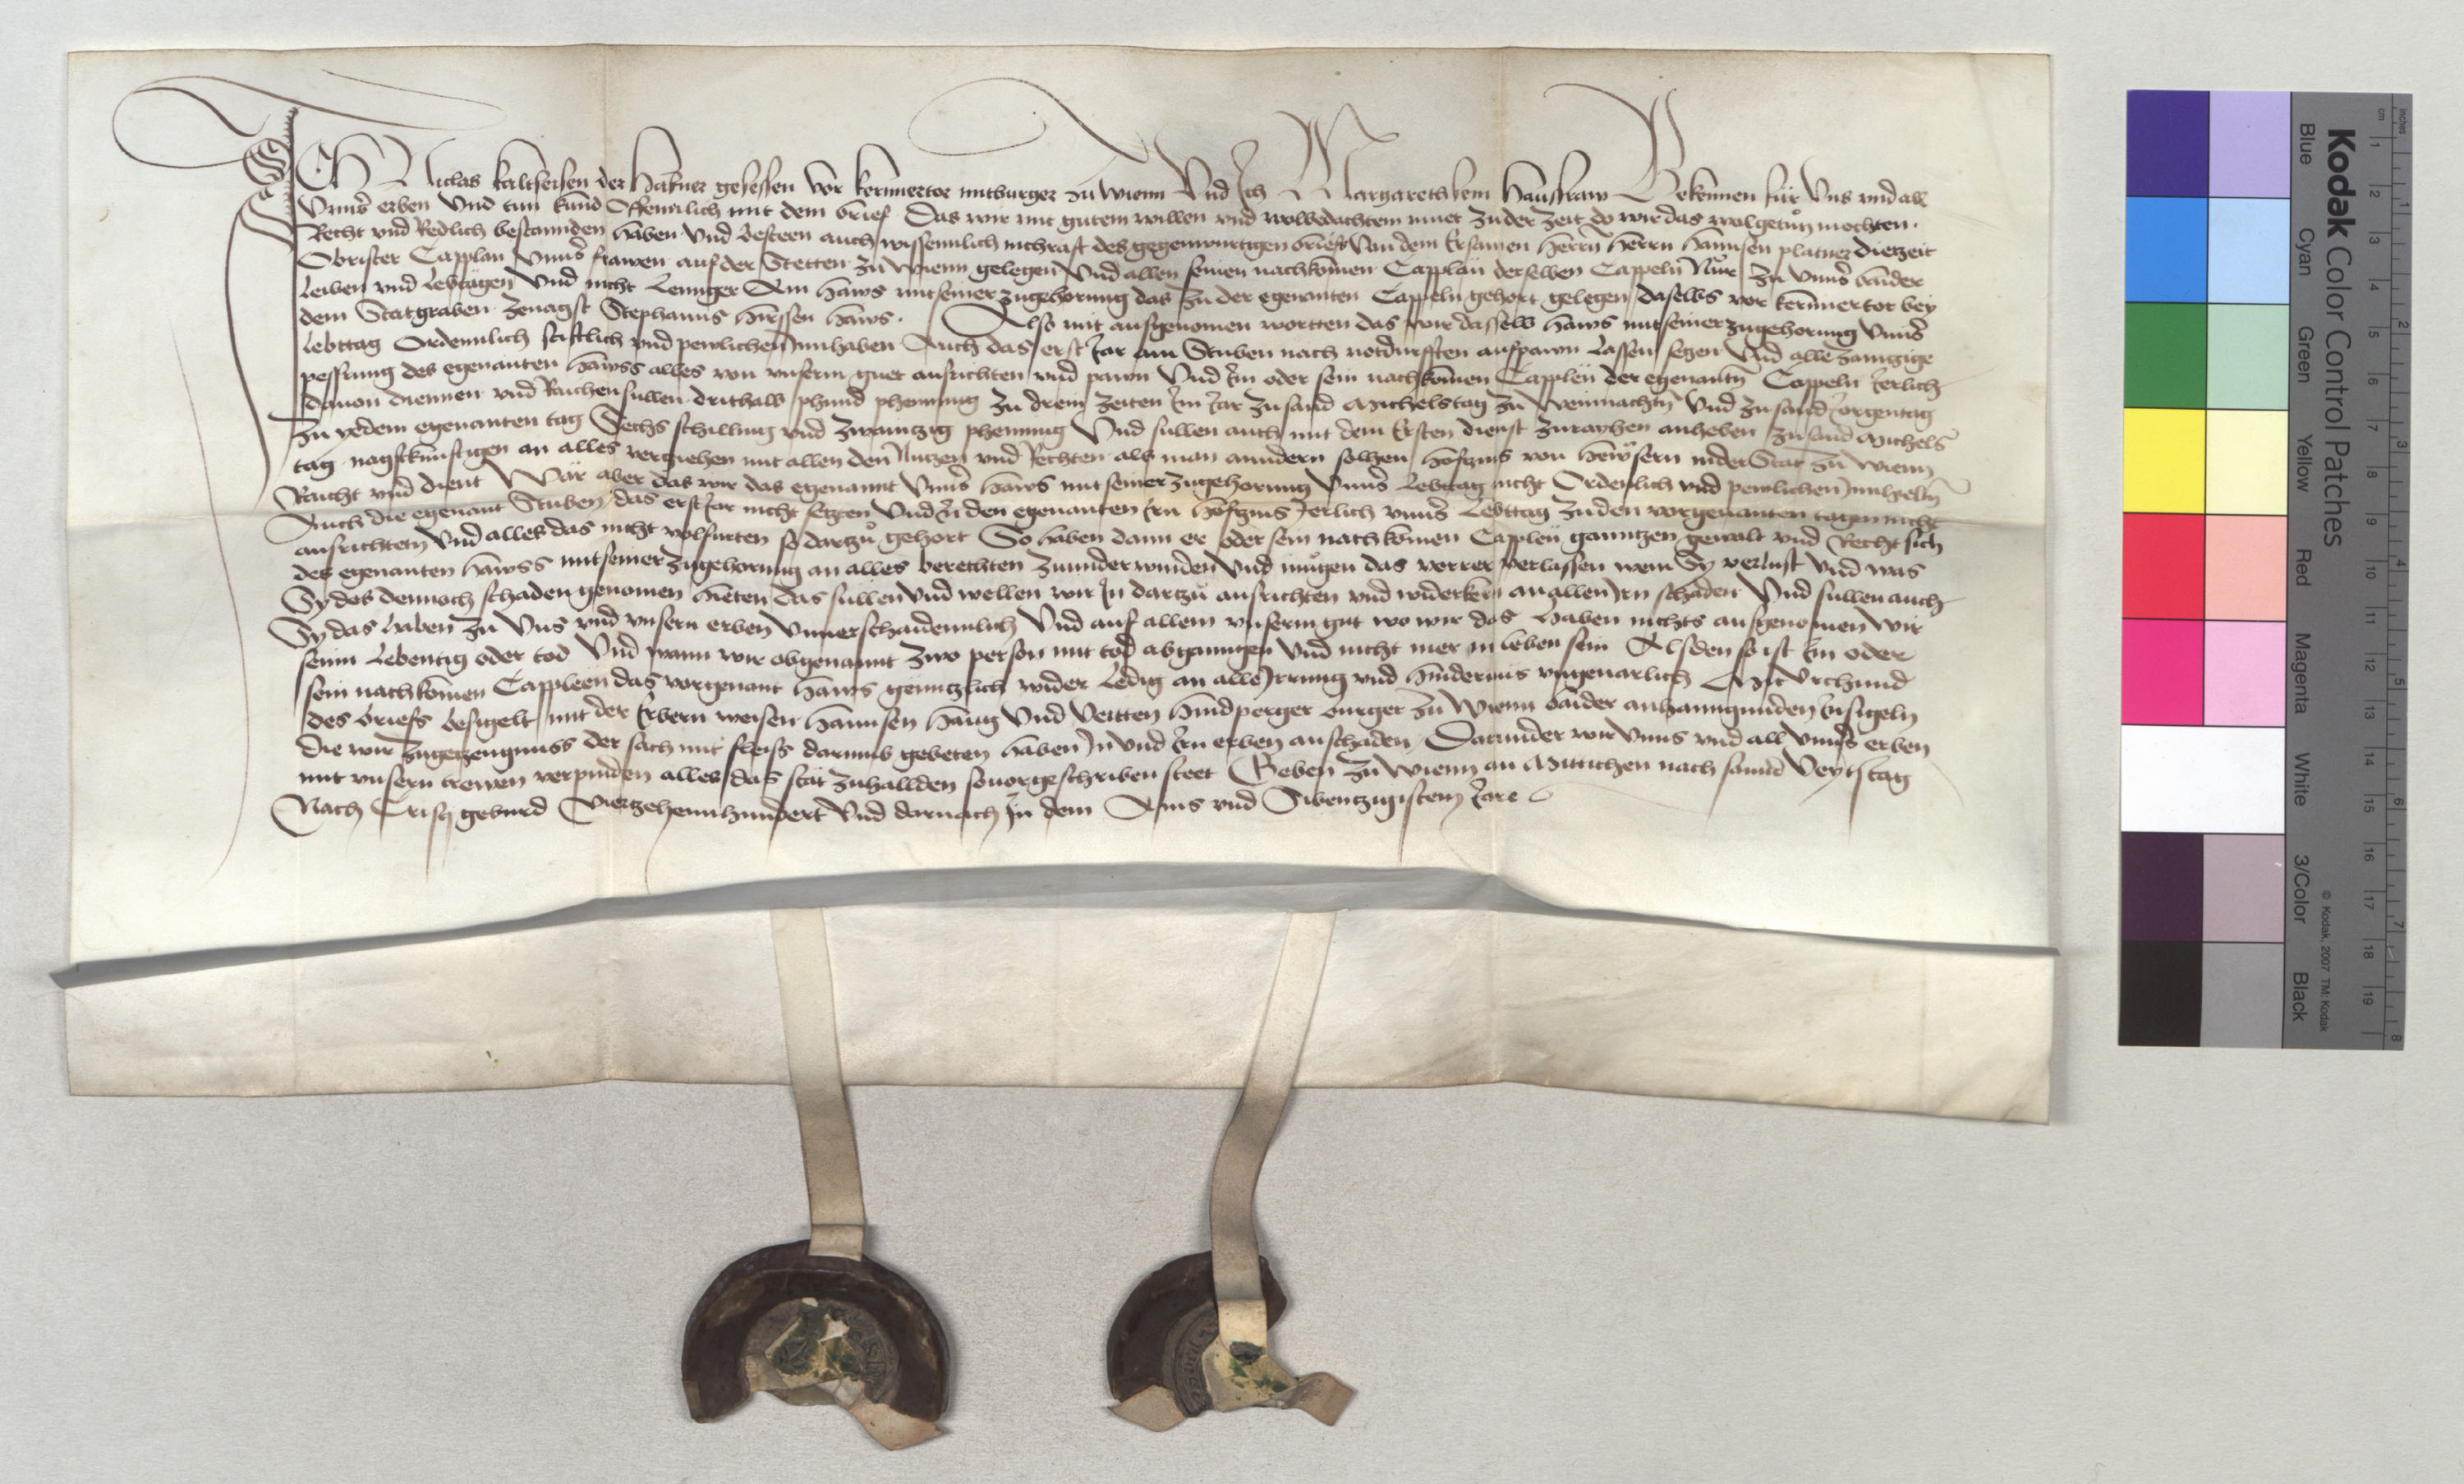 ICH Niclas kaltseisen der Hafner gesessen vor kernnertor mitburger zu wienn Und Ich Margareth sein hausfraw Bekennen für Uns und all
Unnser erben Und tun kund Offennlich mit dem brief Das wir mit gutem willen und wolbedachtem muet zu der zeit do wir das wolgetun mochten.
Recht und Redlich bestannden haben Und besteen auch wissenntlich mit kraft des gegenwurtigen briefs Von dem Ersamen herrn herrn Hannsen platner dietzeit
Obrister Capplan Unnser frawen auf der Stetten zu Wienn gelegen Und allen seinen nachkomen Capplan derselben Cappeln Nur zu unnser baider
Leiben und Lebtägen Und nicht Lennger Ain haws mit seiner zugehorung das zu der egenanten Cappeln gehort gelegen daselbs vor kernnertor bey
dem Statgraben zenagst Stephanns hirssen haws. Also mit ausgenomen wortten das wir dasselb haws mit seiner zugehorung unnser
Lebttag Ordennlich stiftlich und pewlichen innhaben Auch das erst Jar ain Stuben nach notdurfften aufpawn lassen setzen Und alle
pessrung des egenanten hawss alles von unserm guet ausrichten und pawn Und Im oder sein nachkomen Capplen der egenantn Cappeln Jerlich
davon diennen und Raichen sullen drithalb phund phenning zu drein zeiten Im Jar zu sand Michelstag zu Weinnachtn Und zu sand Jorgentag
zu yedem egenanten tag Sechs schilling und zwaintzig phenning Und sullen auch mit dem Ersten dienst zuraihen anheben zu sand Michels
tag nagstkunftigen an alles verziehen mit allen den Nutzen und Rechten als man anndern solhen hofzins von hewsern in der Stat zu Wienn
Raicht und dient Wär aber das wir das egenannt Unnser haws mit seiner zugehorung Unnser Lebttag nicht Ordenlich und pewlichen innhieln
Auch die egenant Stuben das erst Jar nicht setzten Und In den egenanten Irn hofzins Jerlich unnser Lebttag zu den vorgenanten tagen nicht
ausrichten Und alles das nicht volfurten so dartzu gehort So haben dann er oder sein nachkomen Capplen ganntzen gewalt und Recht sich
des egenanten hawss mit seiner zugehorung an alles berechten zuunderwinden Und mugen das verrer verlassen wem Sy verlust Und was
Sy des dennoch schaden genomen hieten das sullen Und wellen wir In dartzu ausrichten und widerkern an allen Irn schaden Und sullen auch
Sy das haben zu Uns und unsern erben Unverschaidennlich Und auf allem unserm gut wo wir das haben nichts ausgenomen Wir
seinn Lebentig oder tod Und wann wir obgenannt zwo person mit tod abganngen Und nicht mer in leben sein Alsden so ist Im oder
sein nachkomen Capplen das vorgenant haws genntzlich wider Ledig an alle Irrung und hindernis ungevarlich Mit Urchund
des briefs besigelt mit der Erbern weisen hannsen haug Und Veitten hindperger burger zu Wienn baider anhanngunden Insigeln
Die wir zugetzeugnuss der sach mit fleiss darumb gebeten haben In und Irn erben an schaden Darunder wir Unns und all Unnser erben
mit unsern trewen verpinden alles das stät zuhallden so vorgeschriben steet Geben zu Wienn an Mittichen nach sannd Veytstag
Nach Cristi geburd Viertzehennhundert Und darnach In dem Ains und Sibentzigistem Jare
Kodak Color Control Patches
Blue Cyan Green Yellow Red Magenta White 3/Color Black
© Kodak, 2007 TM: Kodak
inches 1 2 3 4 5 6 7 8
cm 1 2 3 4 5 6 7 8 9 10 11 12 13 14 15 16 17 18 19